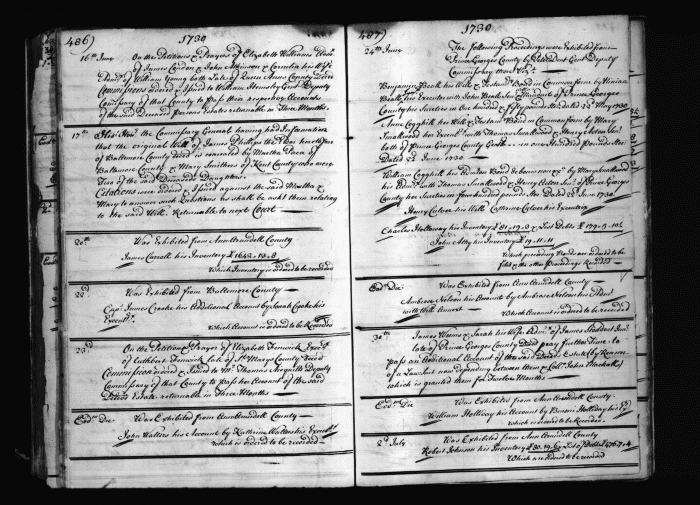 486)
1730
16th June
On the Petitions & Prayers of Elizabeth Williams Admx
of James Condon & John Atkinson & Cornelia his Wife
Admx of William Young both Late of Queen Anns County Decd
Commissions ordered & Issued to William Hemsley Gent Deputy
Comissary of that County to pass their respective Accounts
of the said Deceased persons Estates returnable in Three Months.
17th
His Honr the Commissary General having had Information
that the original Will of James Phillips the Elder heretofore
of Baltimore County Decd is concealed by Martha Paca of
Baltimore County & Mary Smithers of Kent County who were
Two of the said Deceaseds Daughters.
Citations were ordered & Issued against the said Martha &
Mary to answer such Questions as shall be askt them relating
to the said Will. Returnable to next Court
20th
Was Exhibited from Ann Arundell County
James Carroll his Inventory £1643..13..8
Which Inventory is ordered to be recorded
22d
Was Exhibited from Baltemore County
Capt James Crooke his Additional Account by Sarah Crooke his
Execux
Which Account is ordered to be Recorded
23d
On the Petition & Prayer of Elizabeth Fenwick Execx
of Cuthbert Fenwick Late of St Marys County Decd
Commission ordered & Issued to Mr Thomas Aisquith Deputy
Commissary of that County to pass her Account of the said
Decds Estate returnable in Three Months
Eod. Die
Was Exhibited from Ann Arundell County
John Watters his Account by Katherine Watters his Execux
which is ordered to be recorded
487)
1730
24th June
The following Proceedings were Exhibited from
Prince Georges County by Gent Deputy
Commissary there Vizt
Benjamin Beall his Will & Testamt Bond in Common form by
Beall his Executor with John of Prince Georges
County his Sureties in One hundred & fifty pound Ster dated 23d May 1730
Anne Coghill her Will & Testamt Bond in Common form by Mary
Smallwood her Execux with Thomas Smallwood & Henry Acton Junr
both of Prince Georges County Gent in one Hundred pounds Ster
Dated 22 June 1730
William Coghill his Admtion Bond de bonis non &c by Mary Smallwood
his Admx with Thomas Smallwood & Henry Acton Junr of Prince Georges
County her Sureties in four hundred pound Ster Dated 22d June 1730
Henry Culver his Will Catherine Culver his Executrix
Charles Holloway his Inventory £81..19..3 & List Debts £199..9..10½
John Atley his Inventory £19..11..11
Which preceding Bonds are ordered to be
filed & the other Proceedings Recorded
Eod Die
Was Exhibited from Ann Arundell County
Ambrose Nelson his Account by Ambrose Nelson his Admr
with Will Annext
Which Account is ordered to be recorded
30th
James Weems & Sarah his Wife Admx of James Stoddert Junr
late of Prince Georges County Decd pray further Time to
pass an Additional Account of the said Decds Estate by Reason
of a Lawsuit now depending between them & Collo John Mackall
which is granted them for Twelve Months
Eodm Die
Was Exhibited from Ann Arundell County
William Holliday his Account by Holliday his Ex
which is ordered to be Recorded
2d July
Was Exhibited from Ann Arundell County
Robert Johnson his Inventory £80..19..6 & List of Debts
Which are ordered to be recorded